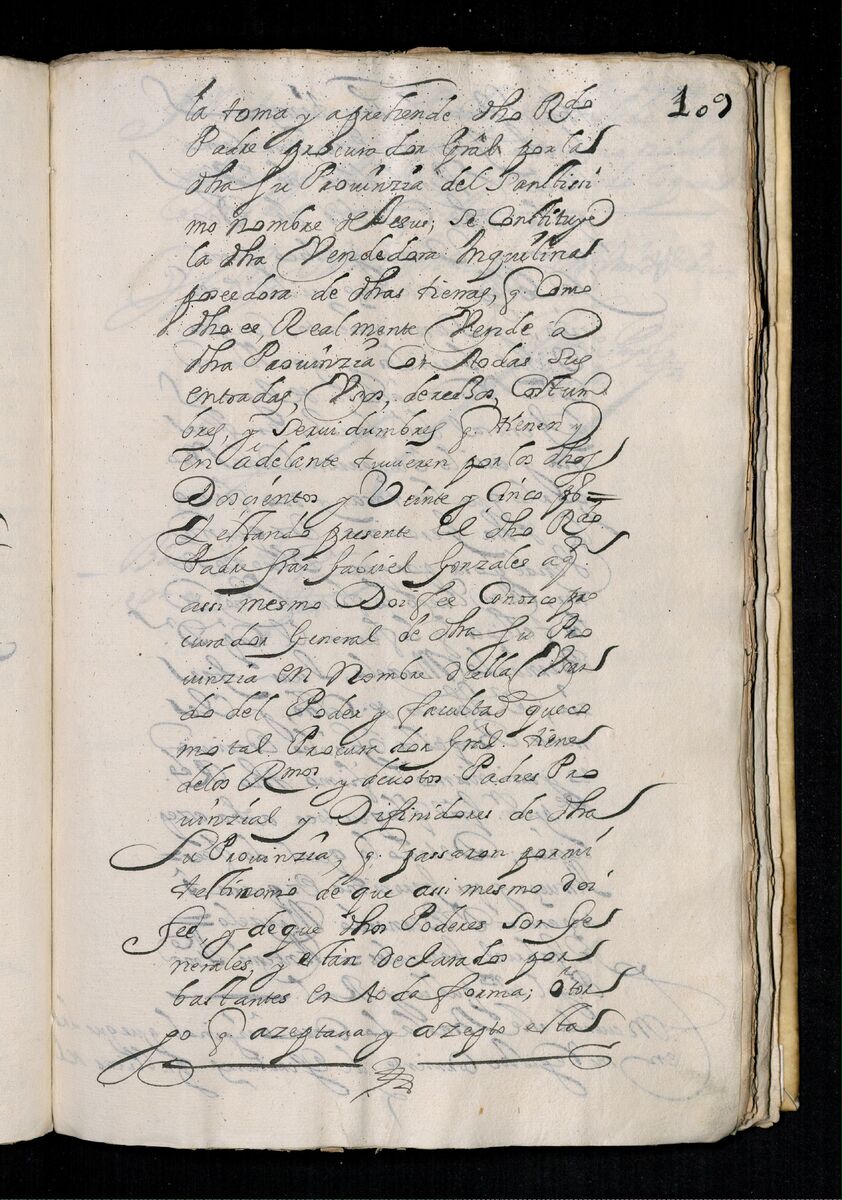 109
la toma y aprehende dho Rdo
Padre procurador Gral por la
dha su Prouinzia del Santissi
mo nombre de Jesus; se Constituye
la dha Vendedora Inquilina
poseedora de dhas tierras, q. Como
dho es, Realmente Vende a
dha Prouinzia Con todas sus
entradas, Vsos, derechos, Costum
bres, y seruidumbres q. tienen y
en adelante tuuieren por los dhos
Doscientos y Veinte y Cinco ps
Y estando presente el dho Rdo
Padre frai Gabriel Gonzales aq.
assi mesmo Doi fee Conozco pro
curador General de dha su Pro
uinzia en Nombre de ella Vsan
do del Poder y facultad que co
mo tal Procurador Gral. tiene
de los Rmos. y deuotos Padres Pro
uinzial y Difinidores de dha
su Prouinzia, q. passaron por mi
testimonio de que assi mesmo doi
fee, y de que dhos Poderes son ge
nerales, y estan declarados por
bastantes en toda forma; otor
go q. azeptaua y azepto esta